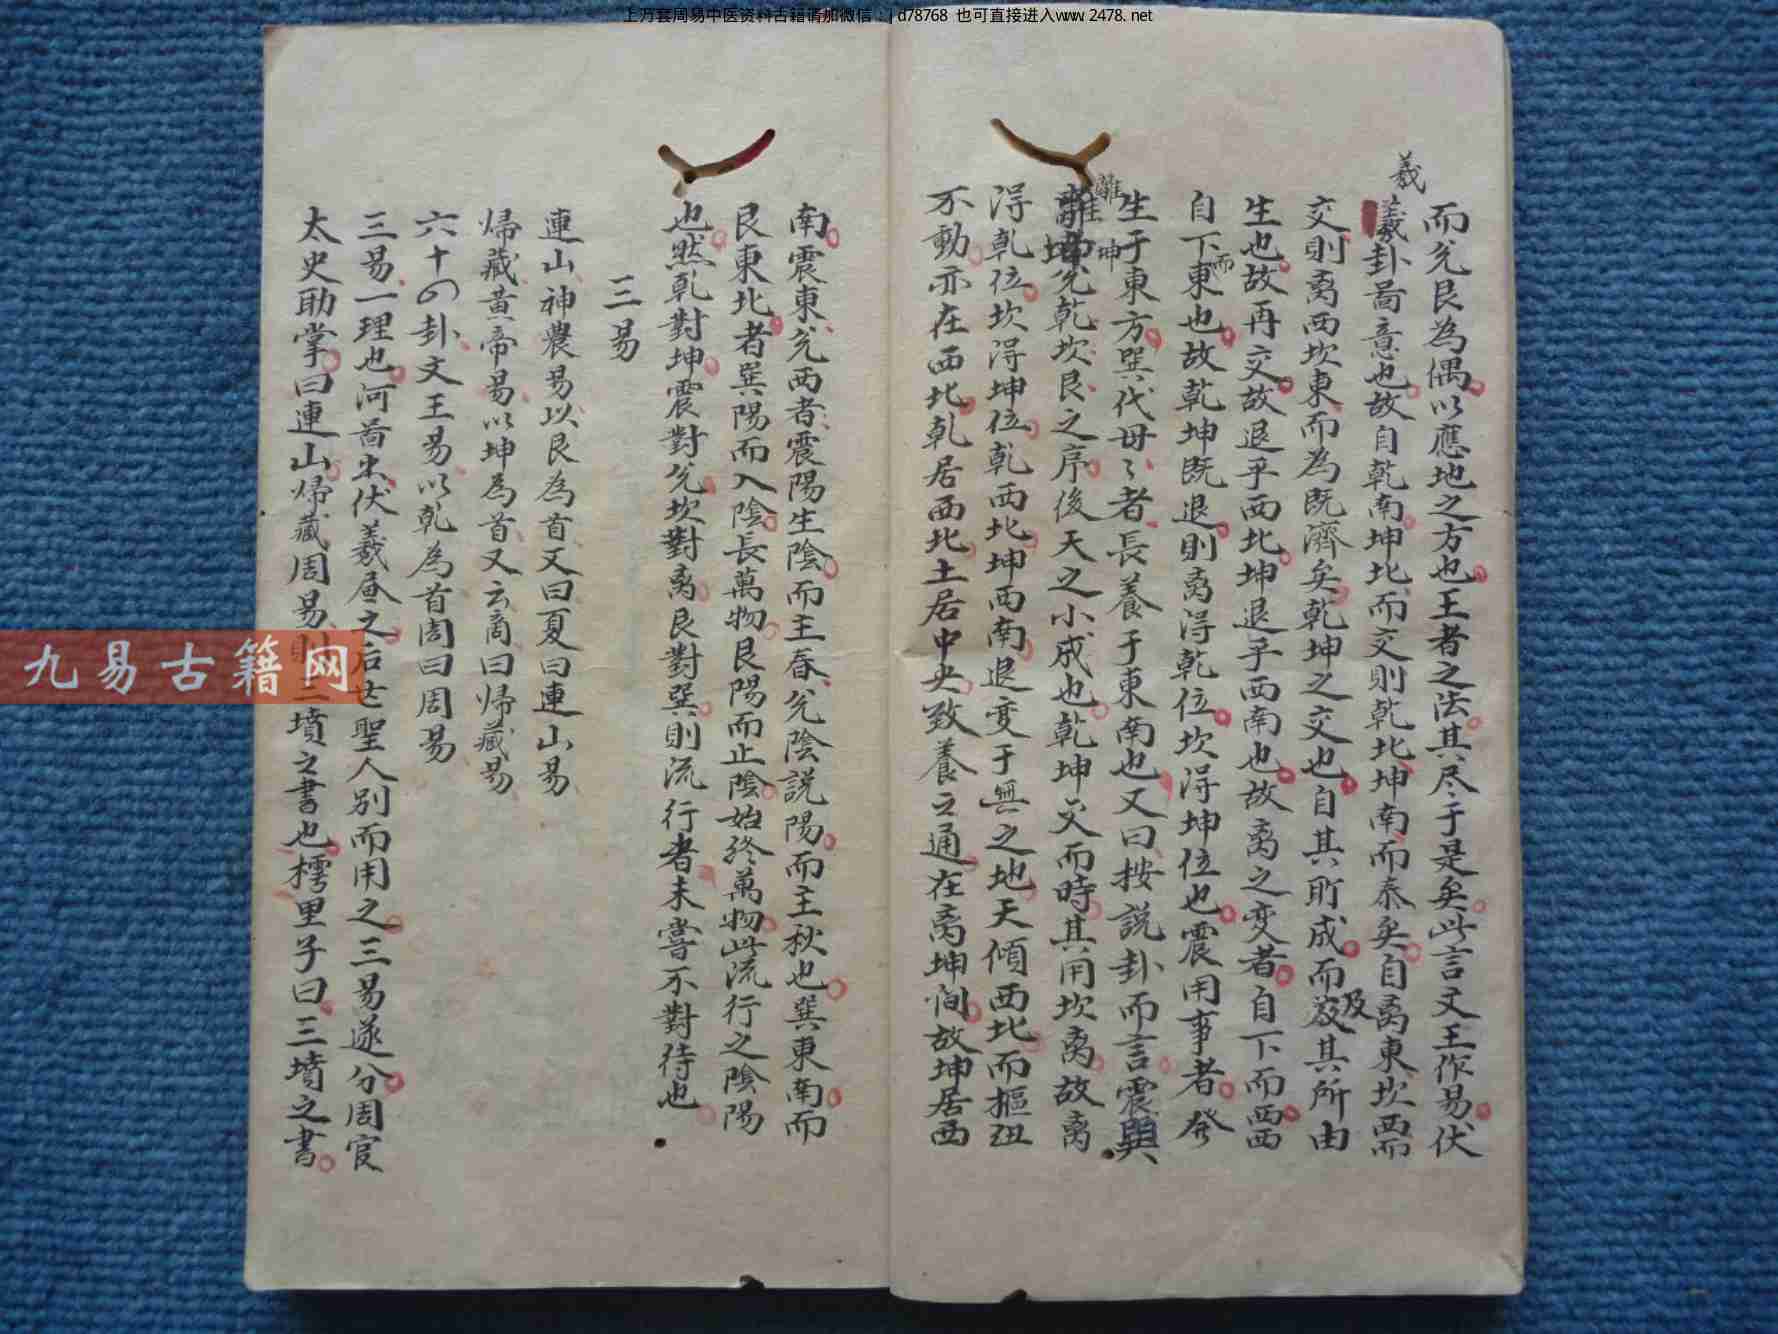 上万套周易中医资料古籍请加微信：j d78768 也可直接进入www.2478.net
羲
而兌艮為偶以應地之方也王者之法其尽于是矣此言文王作易伏
羲卦啚意也故自乾南坤北而交則乾北坤南而泰矣自离東坎西而
交則离西坎東而為既濟矣乾坤之交也自其所成而及其所由
生也故再交故退乎西北坤退乎西南也故离之变者自下而西
自下而東也故乾坤既退則离得乾位坎得坤位也震用事者發
生于東方巽代母々者長養于東南也又曰按説卦而言震與
離坤兌乾坎艮之序後天之小成也乾坤交而時其用坎离故离
得乾位坎得坤位乾西北坤西南退变于無之地天傾西北而樞紐
不動亦在西北乾居西北土居中央致養之通在离坤間故坤居西
南震東兌西者震陽生陰而主春兌陰説陽而主秋也巽東南而
艮東北者巽陽而入陰長萬物艮陽而止陰始終萬物此流行之陰陽
也然乾對坤震對兌坎對离艮對巽則流行者未嘗不對待也
三易
連山神農易以艮為首又曰夏曰連山易
帰藏黄帝易以坤為首又云商曰帰藏易
六十四卦文王易以乾為首周曰周易
三易一理也河啚出伏羲画之后世聖人别而用之三易遂分周官
太史助掌曰連山帰藏周易則三墳之書也樗里子曰三墳之書
九易古籍网